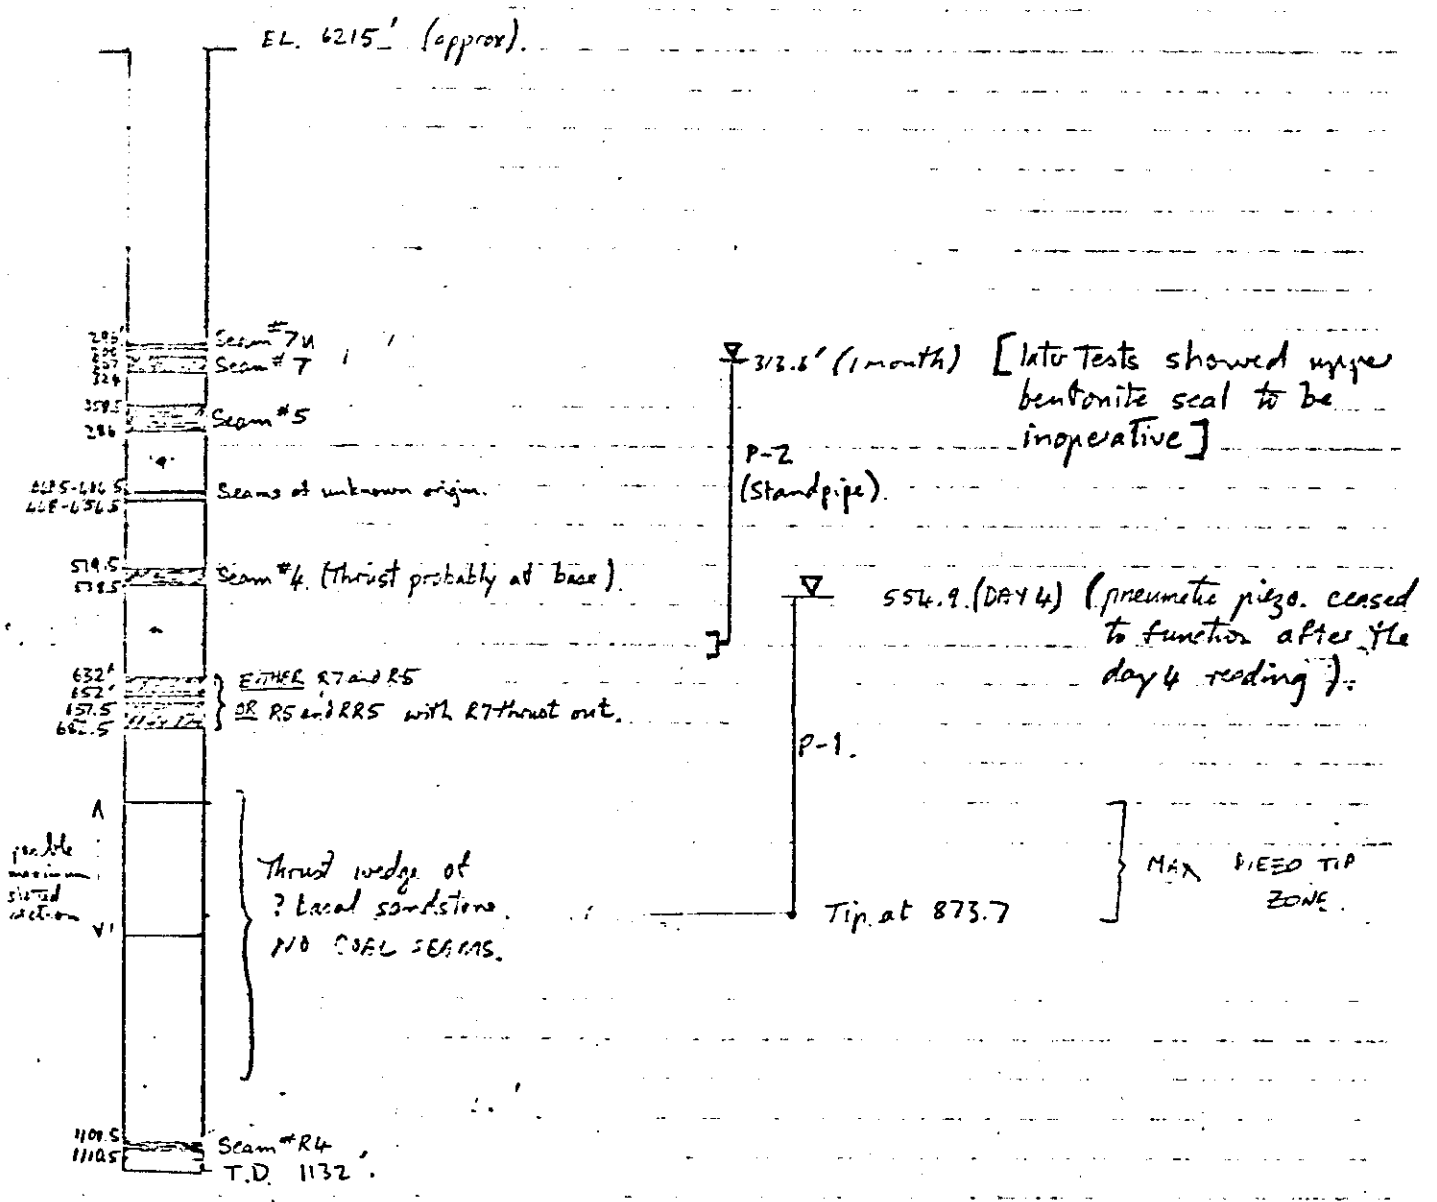 EL. 6215' (approx).
Seam #7U
Seam #7
324
358.5
286
Seam #5
Seams of unknown origin.
519.5
538.5
Seam #4. (Thrust probably at base).
632'
652'
657.5
682.5
EITHER R7 and R5
OR R5 and RR5 with R7 thrust out.
possible
maximum
slotted
section
Thrust wedge of
? basal sandstone.
NO COAL SEAMS.
Seam #R4
T.D. 1132'.
313.6' (1 month)
[later tests showed upper
bentonite seal to be
inoperative]
P-2
(Standpipe).
554.9. (DAY 4) (pneumatic piezo. ceased
to function after the
day 4 reading).
P-1.
Tip. at 873.7
MAX PIEZO TIP
ZONE.